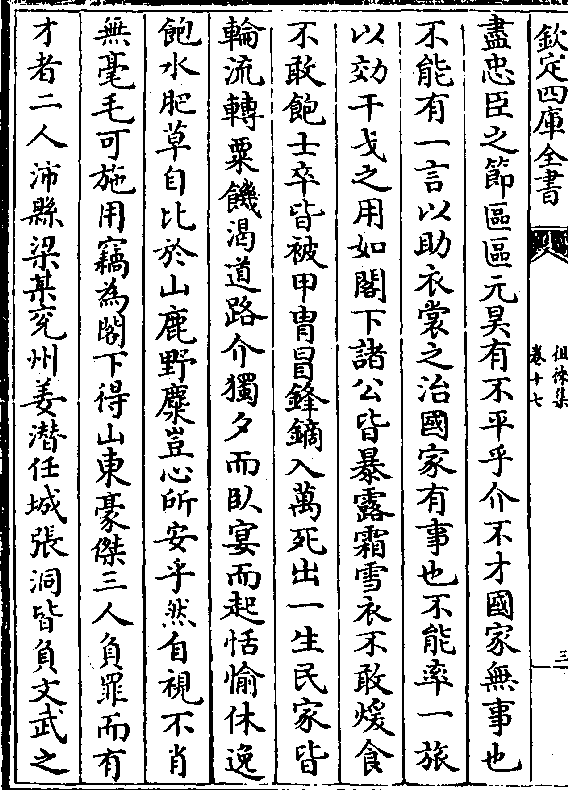 欽定四庫全書
徂徠集
卷十七
三
盡忠臣之節區區元昊有不平乎介不才國家無事也
不能有一言以助衣裳之治國家有事也不能率一旅
以効干戈之用如閣下諸公皆暴露霜雪衣不敢煖食
不敢飽士卒皆被甲胄冒鋒鏑入萬死出一生民家皆
輪流轉粟饑渴道路介獨夕而臥宴而起恬愉休逸
飽水肥草自比於山鹿野麋豈心所安乎然自視不肖
無毫毛可施用竊為閣下得山東豪傑三人負罪而有
才者二人沛縣梁某兖州姜潜任城張洞皆負文武之